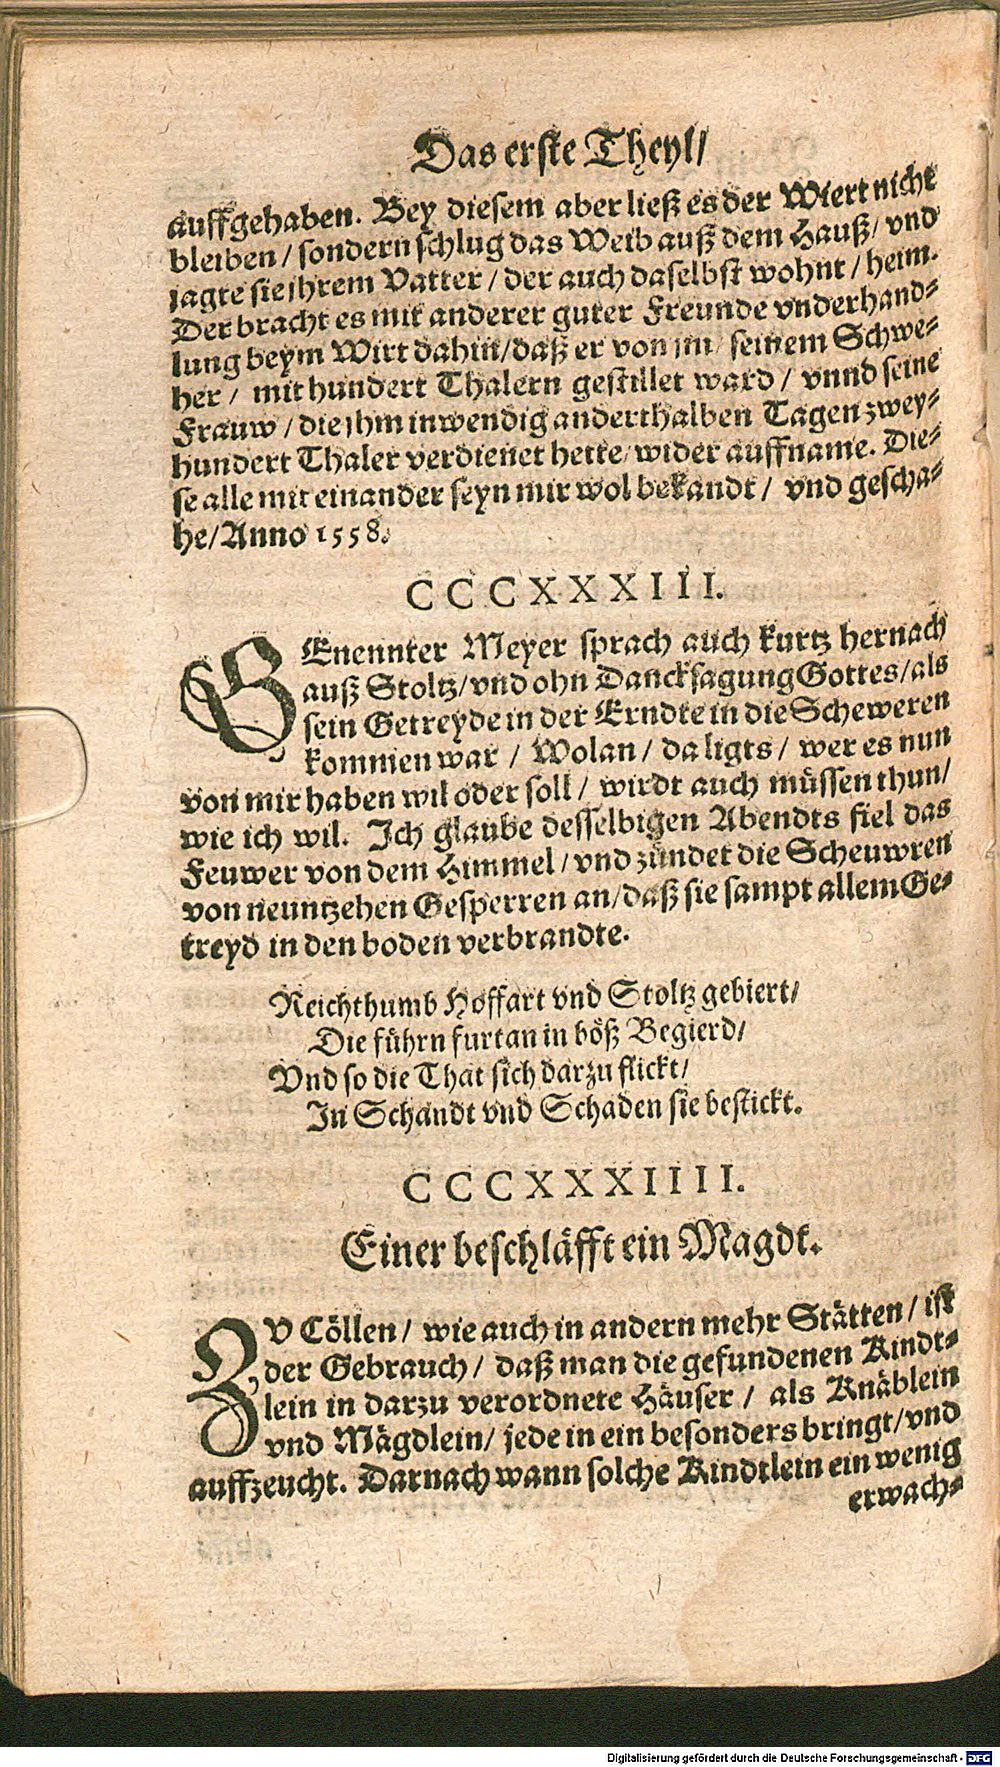 Das erste Theyl/
auffgehaben. Bey diesem aber ließ es der Wiert nicht
bleiben / sondern schlug das Weib auß dem Hauß / vnd
jagte sie jhrem Vatter / der auch daselbst wohnt / heim.
Der bracht es mit anderer guter Freunde vnderhand-
lung beym Wirt dahin / daß er von jm / seinem Schwe-
her / mit hundert Thalern gestillet ward / vnnd seine
Frauw / die jhm inwendig anderthalben Tagen zwey-
hundert Thaler verdienet hette / wider auffname. Die-
se alle mit einander seyn mir wol bekandt / vnd gescha-
he / Anno 1558.
CCCXXXIII.
GEnennter Meyer sprach auch kurtz hernach
auß Stoltz / vnd ohn Dancksagung Gottes / als
sein Getreyde in der Erndte in die Scheweren
kommen war / Wolan / da ligts / wer es nun
von mir haben wil oder soll / wirdt auch müssen thun /
wie ich wil. Ich glaube desselbigen Abendts fiel das
Feuwer von dem Himmel / vnd zündet die Scheuwren
von neuntzehen Gesperren an / daß sie sampt allem Ge-
treyd in den boden verbrandte.
Reichthumb Hoffart vnd Stoltz gebiert /
Die führn furtan in böß Begierd /
Vnd so die That sich darzu flickt /
In Schandt vnd Schaden sie bestickt.
CCCXXXIIII.
Einer beschläfft ein Magdt.
ZV Cöllen / wie auch in andern mehr Stätten / ist
der Gebrauch / daß man die gefundenen Kindt-
lein in darzu verordnete Häuser / als Knäblein
vnd Mägdlein / jede in ein besonders bringt / vnd
auffzeucht. Darnach wann solche Kindtlein ein wenig
erwach-
Digitalisierung gefördert durch die Deutsche Forschungsgemeinschaft - DFG